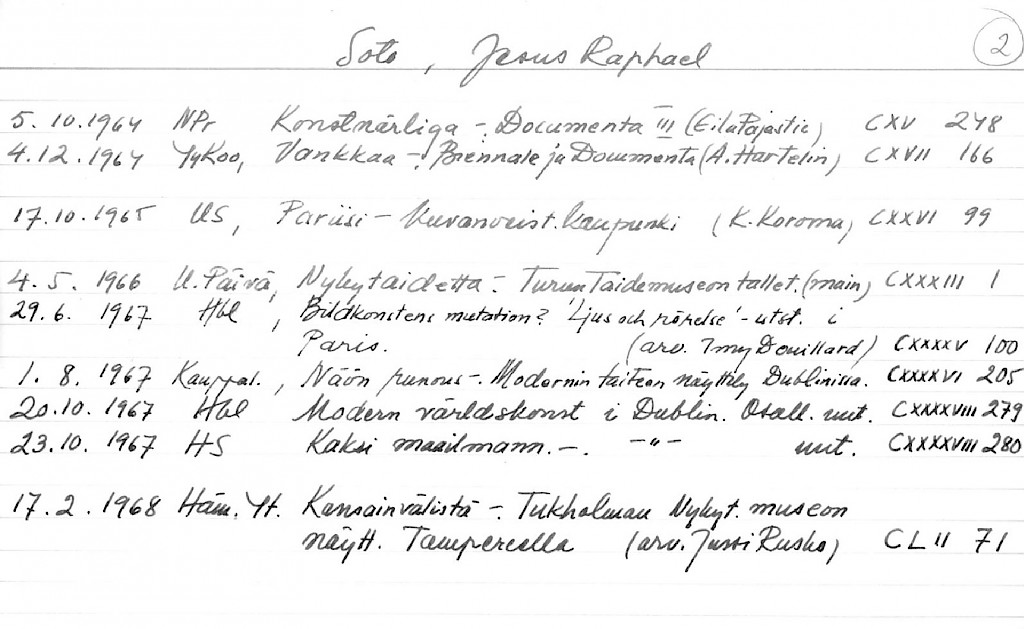 2
Soto, Jesus Raphael
5.10.1964 NPr Konstnärliga -. Documenta III (Eila Pajastie) CXV 248
4.12.1964 YyKoo, Vankkaa -. Biennale ja Documenta (A. Hartelin) CXVII 166
17.10.1965 US, Pariisi - Kuvanveist. kaupunki (K. Koroma) CXXVI 99
4.5.1966 U. Päivä, Nykytaidetta -. Turun Taidemuseon tallet. (main) CXXXIII 1
29.6.1967 Hbl, Bildkonstens mutation? 'Ljus och rörelse' - utst. i
Paris. (arv. Douillard) CXXXXV 100
1.8.1967 Kauppal., Näön punous -. Modernin taiteen näyttely Dublinissa. CXXXXVI 205
20.10.1967 Hbl Modern världskonst i Dublin. Osall. uut. CXXXXVIII 279
23.10.1967 HS Kaksi maailmann. -. -"- uut. CXXXXVIII 280
17.2.1968 Häm. Yt. Kansainvälistä -. Tukholman Nykyt. museon
näytt. Tampereella (arv. Jussi Rusko) CLII 71